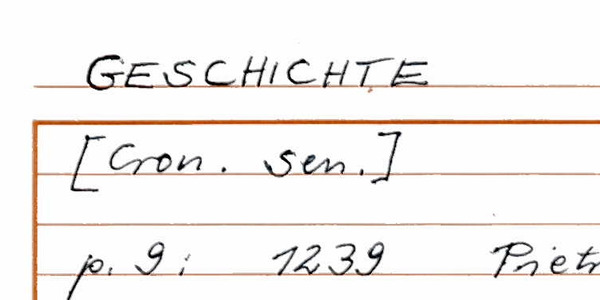 GESCHICHTE
[Cron. sen.]
p. 9: 1239 Pietr